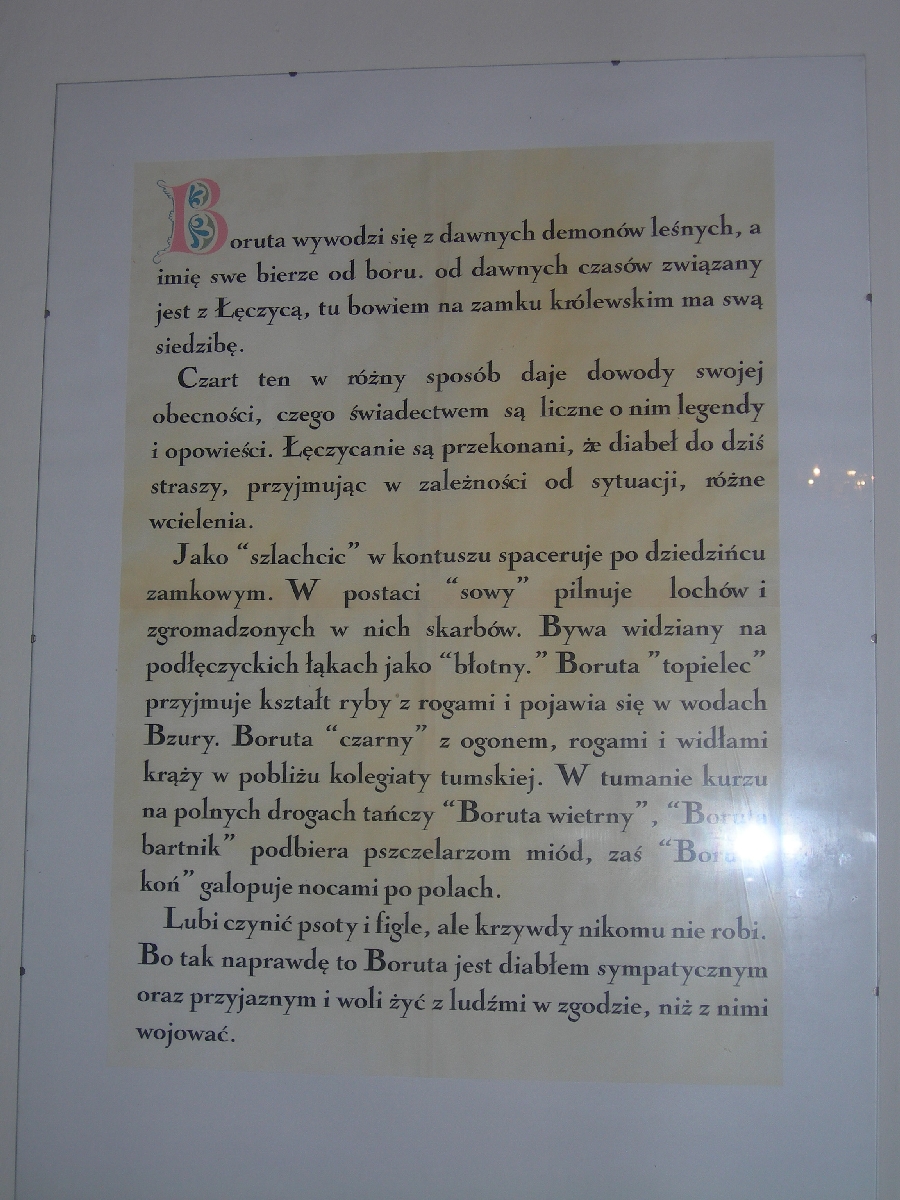 Boruta wywodzi się z dawnych demonów leśnych, a
imię swe bierze od boru. od dawnych czasów związany
jest z Łęczycą, tu bowiem na zamku królewskim ma swą
siedzibę.
Czart ten w różny sposób daje dowody swojej
obecności, czego świadectwem są liczne o nim legendy
i opowieści. Łęczycanie są przekonani, że diabeł do dziś
straszy, przyjmując w zależności od sytuacji, różne
wcielenia.
Jako “szlachcic” w kontuszu spaceruje po dziedzińcu
zamkowym. W postaci “sowy” pilnuje lochów i
zgromadzonych w nich skarbów. Bywa widziany na
podłęczyckich łąkach jako “błotny.” Boruta ”topielec”
przyjmuje kształt ryby z rogami i pojawia się w wodach
Bzury. Boruta “czarny” z ogonem, rogami i widłami
krąży w pobliżu kolegiaty tumskiej. W tumanie kurzu
na polnych drogach tańczy “Boruta wietrny”, “Boruta
bartnik” podbiera pszczelarzom miód, zaś “Boruta
koń” galopuje nocami po polach.
Lubi czynić psoty i figle, ale krzywdy nikomu nie robi.
Bo tak naprawdę to Boruta jest diabłem sympatycznym
oraz przyjaznym i woli żyć z ludźmi w zgodzie, niż z nimi
wojować.